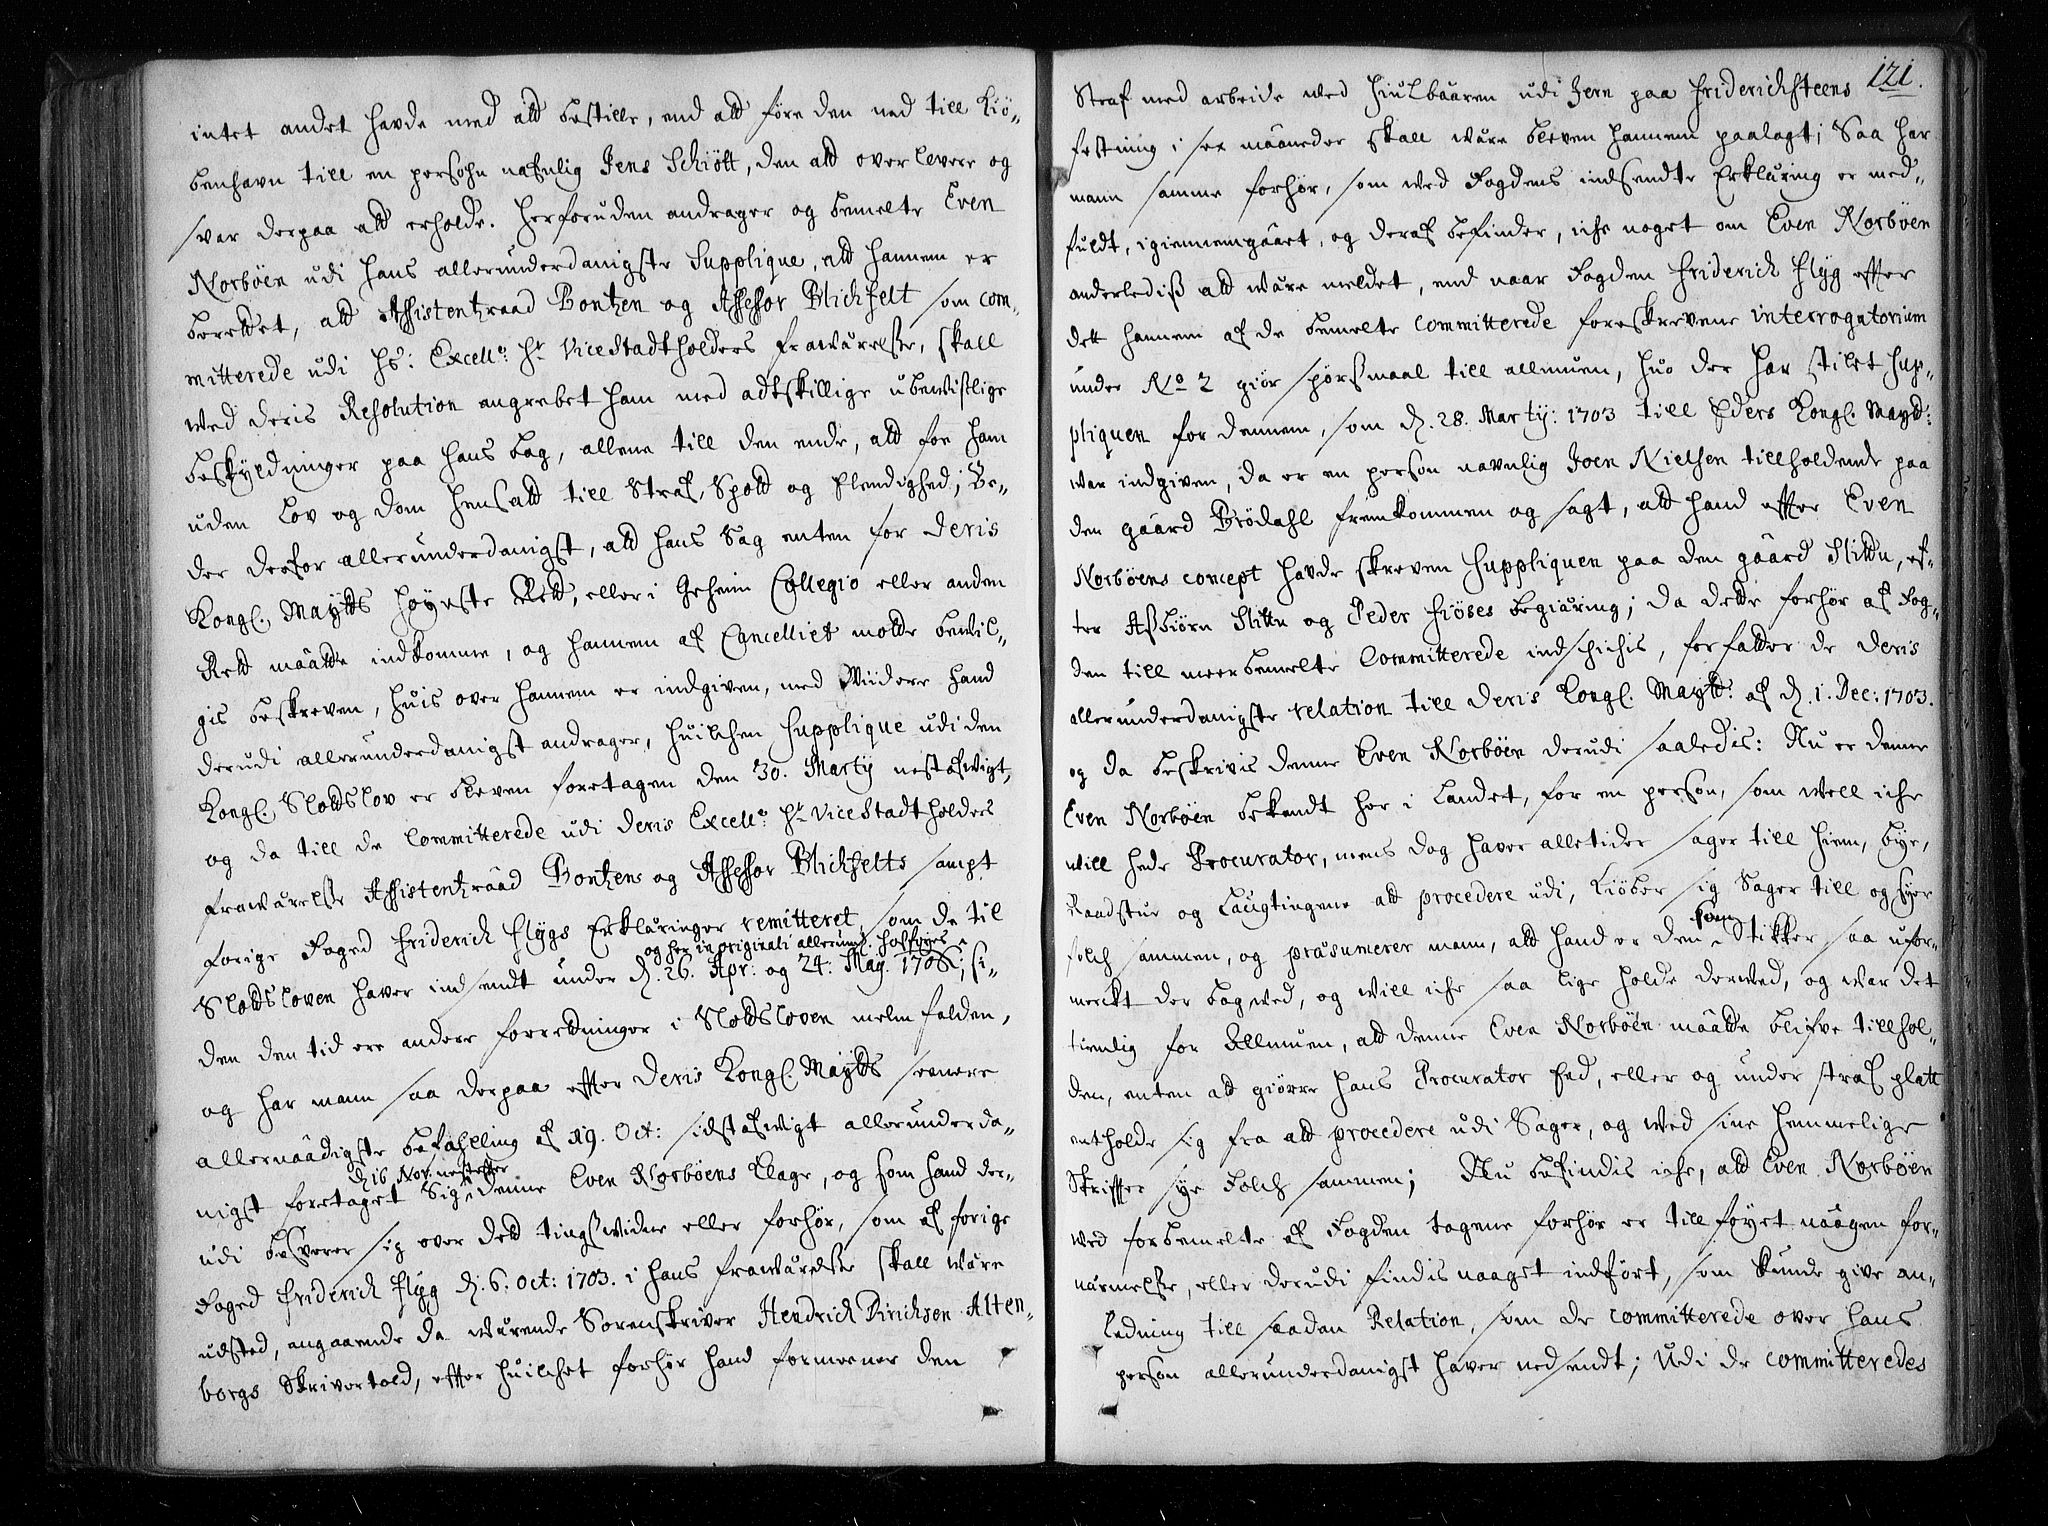 intet andet hafde med ald bestille, end ald føre den ned till Kiø-
benhavn till en persohn nafnlig Jens Schiøtt, den ald overlevere og
svar derpaa ald erholde. Herforuden andrager og bemelte Even
Norbøen udi hans allerunderdanigste Supplique, ald hannem er
berettet, ald Assistentzraad Bontzen og Assessor Blichfelt som com-
mitterede udi Hs: Excell:s Hr ViceStadtholders frawærelse, skall
wed deris Resolution angrebet ham med adtskillige ubewistlige
beskyldninger paa hans bag, allene till den ende, ald foe ham
uden Lov og dom hensatt till Straf, Spott og Elendighed; Be-
der derfor allerunderdanigst, ald hans Sag enten for Deris
Kongl. Maytts Høyeste Rett, eller i Geheim Collegio eller anden
Rett maatte indkomme, og hannem af Cancelliet motte bewil-
gis beskreven, huis over hannem er indgiven, med Wiidere hand
derudi allerunderdanigst andrager, huilchen Supplique udi den
Kongl. Slodtslov er bleven foretagen den 30. Marty nestafwigt,
og da till de Committerede udi Deris Excell:s Hr ViceStadtholders
frawærelse Assistentzraad Bontzens og Assessor Blichfelts sampt
forige Foged Friderich Flygs Erklæringer remitteret, som de til
og her in originali allerund. hosføyes
Slodtsloven haver indsendt under d. 26. Apr: og 24: May. 1706; si-
den den tid ere andere forretninger i Slodtsloven melm falden,
og har mann saa derpaa effter Deris Kongl. Maytts senere
allernaadigste befahlling af 19. Oct: sidstafwigt allerunderda-
d 16 Nov. nesteffter
nigst foretaget Sig denne Even Norbøens Klage, og som hand der-
udi besverer sig over dett tingswidne eller forhør, som af forige
Foged Friderich Flyg d. 6. Oct: 1703. i hans frawærelse skall wære
udsted, angaaende da wærende Sorenskriver Hendrich Dirichsen Alten-
borgs Skrivertold, effter huilchet forhør hand formeener den
121.
Straf med arbeide wed Hiulbaaren udi Jern paa Friderichsteens
festning i sex maaneder skall wære bleven hannem paalagt; Saa har
mann samme forhør, som wed Fogdens indsendte Erklæring er med-
fuldt, igiennemgaaet, og deraf befinder, iche noget om Even Norbøen
anderlediss ald wære meldet, end naar Fogden Friderich Flyg effter
dett hannem af de bemelte Committerede foreskrevene interrogatorium
under No 2 giør spørssmaal till allmuen, huo der har stilet Sup-
pliquen for dennem, som d. 28. Marty: 1703 till Eders Kongl. Maytt:
war indgiven, da er en person navnlig Joen Nielsen tillholdende paa
den gaard Brødahl fremkommen og sagt, ald hand effter Even
Norbøens concept hafde skreven Suppliquen paa den gaard Slittu, ef-
ter Assbiørn Slittu og Peder Fiøses begiæring; Da dette forhør af Fog-
den till meerbemelte Committerede indschichis, forfatter de deris
allerunderdanigste relation till Deris Kongl. Maytt: af d. 1. Dec: 1703.
og da beskrivis denne Even Norbøen derudi saaledis: Nu er denne
Even Norbøen bekandt her i Landet, for en person, som well iche
will hede Procurator, mens dog haver alletider sager till hiem, bye,
Raadstue og Laugtingene ald procedere udi, kiøber sig Sager till og hyer
som
folch sammen, og præsumerer mann, ald hand er den Stikker saa ufor-
merckt der bagwed, og will iche saa lige holde derwed, og war det
tienlig for Allmuen, ald denne Even Norbøen maatte blifve tillhol-
den, enten ad giørre hans Procurator Eed, eller og under straf platt
entholde sig fra ald procedere udi Sager, og wed sine hemmelige
Skriffter hye Folch sammen; Nu befindis iche, ald Even Norbøen
wed forbemelte af Fogden tagene forhør er tillføyet naagen for-
nærmelse, eller derudi findis naaget indført, som kunde give an-
ledning till saadan Relation, som de committerede over hans
person allerunderdanigst haver nedsendt; Udi de committeredes